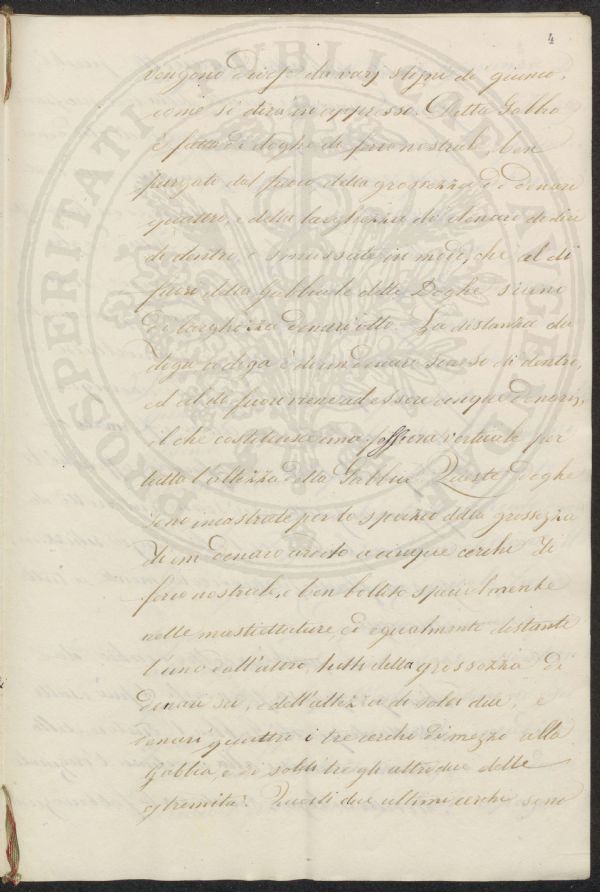 4
vengono divise da varj stegni di giunco,
come si dirà in appresso. Detta Gabbia
è fatta di doghe di ferro nostrale ben
purgato dal fuoco della grossezza di denari
quattro, e della larghezza di denaro dodici
di dentro, e smussate in modo, che al di
fuori della Gabbia le dette Doghe sieno
di larghezza denari otto. La distanza da
doga a doga è di un denaro scarso di dentro,
ed al di fuori viene ad essere cinque denari,
il che costituisce una feritoia verticale per
tutta l'altezza della Gabbia. Queste Doghe
sono incastrate per lo spazio della grossezza
di un denaro a cinque cerchi di
ferro nostrale, e ben bollito specialmente
nelle mastiettature, ed egualmente distanti
l'uno dall'altro, tutti della grossezza di
denari sei, e dell'altezza di soldi due, e
denari quattro i tre cerchi di mezzo alla
Gabbia, e di soldi tre gli altri due delle
estremità. Questi due ultimi cerchi sono
PROSPERITATI PVBLICAE AVGENDAE